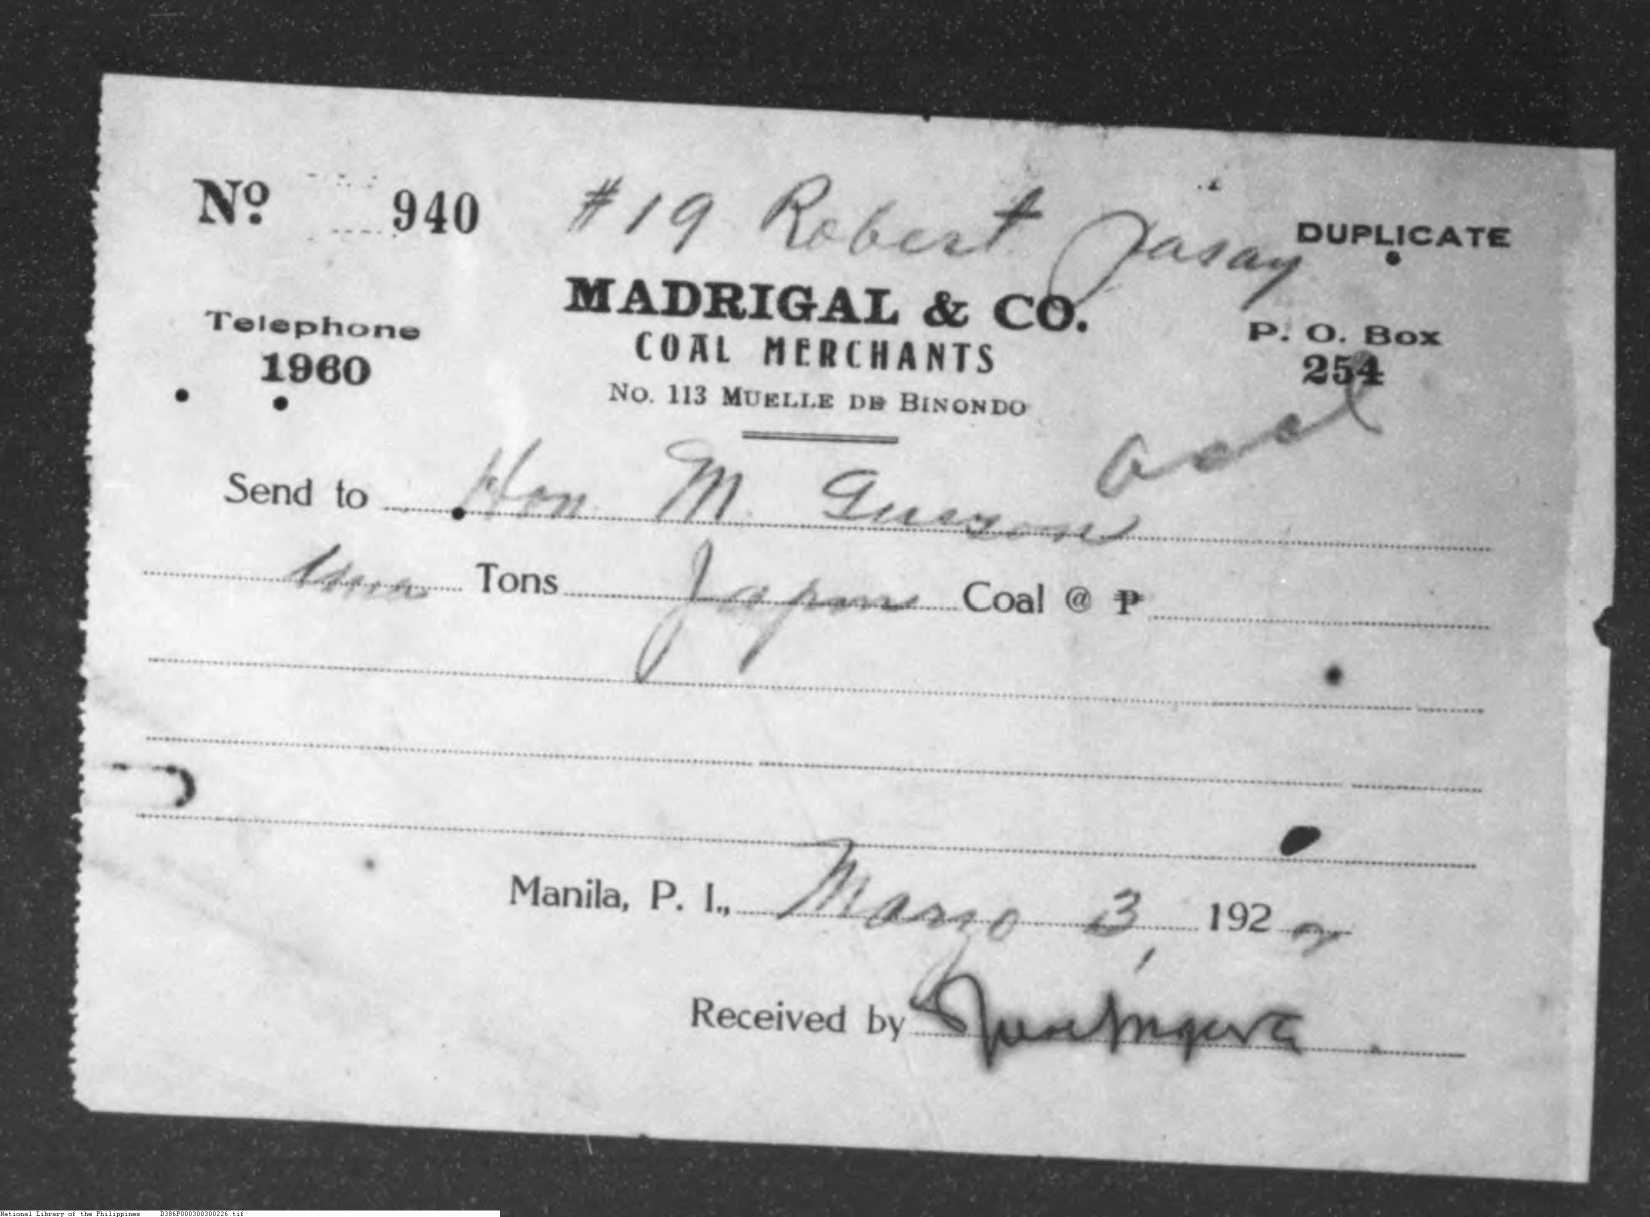 Nº 940 #19 Robert Pasay DUPLICATE
MADRIGAL & CO.
Telephone COAL MERCHANTS P. O. Box
1960 No. 113 MUELLE DE BINONDO 254
Send to Hon M.
Tons Japon Coal @ ₱
Manila, P. I., Marzo 3, 192 2
Received by
National Library of the Philippines D386P000300300226.tif